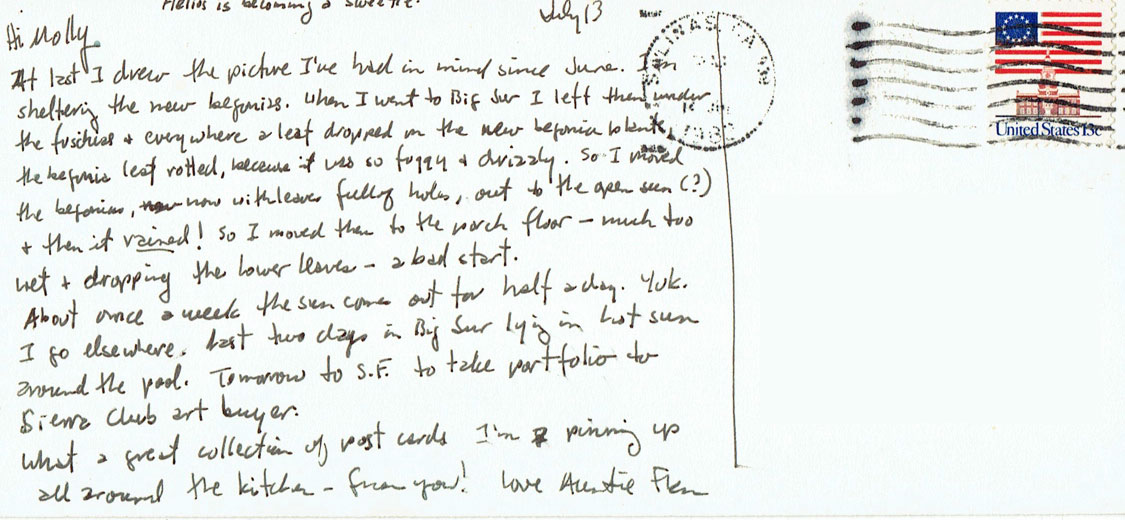 Helios is becoming a sweetie.
July 13
Hi Molly,
At last I drew the picture I've had in mind since June. I'm
sheltering the new begonias. When I went to Big Sur I left them under
the fuschias & everywhere a leaf dropped on the new begonia plants,
the begonia leaf rotted, because it was so foggy & drizzly. So I moved
the begonias, now with leaves full of holes, out to the open sun (?)
& then it rained! So I moved them to the porch floor – much too
wet & dropping the lower leaves – a bad start.
About once a week the sun comes out for half a day. Yuk.
I go elsewhere. Last two days in Big Sur lying in hot sun
around the pool. Tomorrow to S.F. to take portfolio to
Sierra Club art buyer.
What a great collection of post cards I'm pinning up
all around the kitchen – from you! Love Auntie
SALINAS, CA
United States 13c